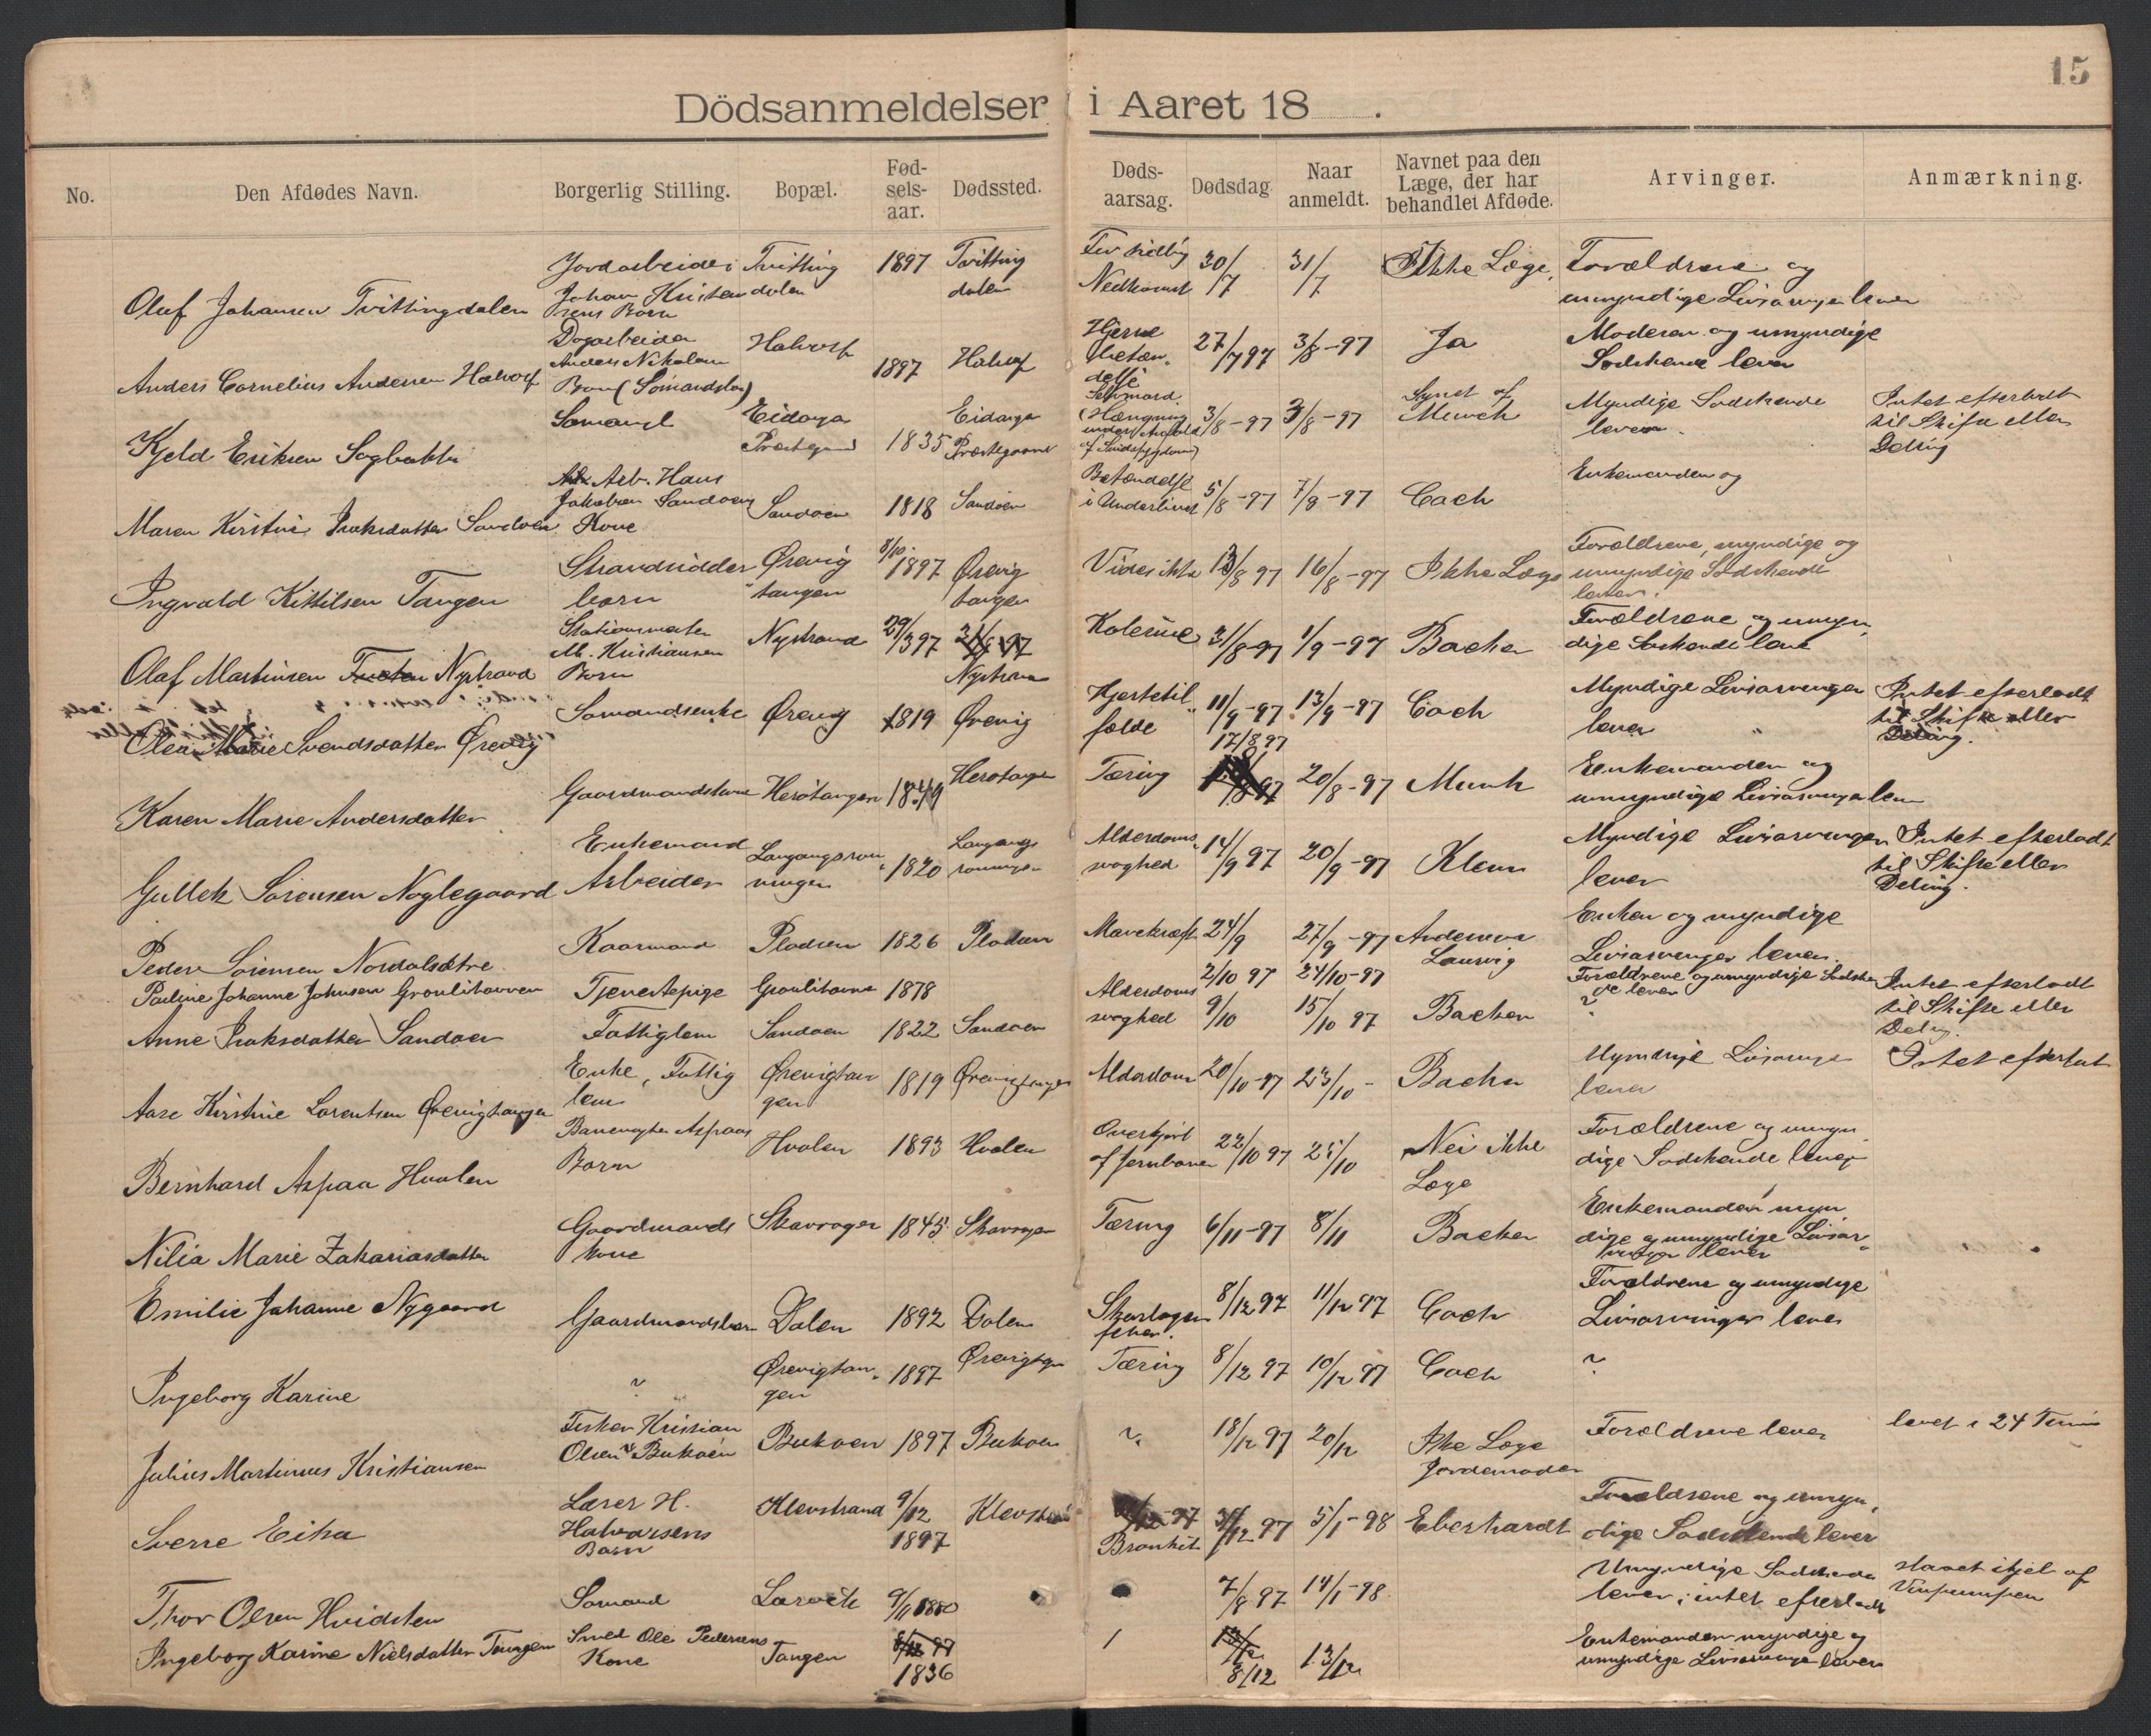 15
Dödsanmeldelser i Aaret 18 .
No. Den Afdødes Navn. Borgerlig Stilling. Bopæl. Fød-sels-aar. Dødssted. Døds-aarsag. Dødsdag Naar anmeldt. Navnet paa den Læge, der har behandlet Afdøde. Arvinger. Anmærkning.
Olaf Johansen Tvittingdalen Jordarbeider Johan Kristensens Barn Tvittingdalen 1897 Tvittingdalen For tidlig Nedkomst 30/7 31/7 Ikke Læge. Forældrene og umyndige Livsarvinger lever
Anders Cornelius Andersen Halvorf Dagarbeider Anders Nikolaisen Barn (Sømandsbarn) Halvorf 1897 Halvorf Hjerne betændelse 27/7 97 3/8-97 Ja Moderen og umyndige Sødskende lever
Kjeld Eriksen Sagbakken Sømand Eidanger Præstegaard 1835 Eidanger Præstegaard Selvmord (Hængning under Anfald af Sindssygdom) 3/8-97 3/8-97 Synet af Munch Myndige Sødskende lever. Intet efterladt til Skifte eller Deling
Maren Kirstine Isaksdatter Sandøen Arb. Hans Jakobsen Sandøens Kone Sandøen 1818 Sandøen Betændelse i Underlivet 5/8-97 7/8-97 Coch Enkemanden og
Ingvald Kittilsen Tangen Strandsidder barn Ørevig tangen 8/10 1897 Ørevig tangen Vides ikke 13/8 97 16/8-97 Ikke Læge Forældrene, myndige og umyndige Sødskende lever.
Olaf Martinsen Nystrand Stationsmester M. Kristiansen Barn Nystrand 29/3 97 31/8 97 Nystrand Kolerine 31/8-97 1/9-97 Backer Forældrene og umyndige Søskende lever
Olea Marie Svendsdatter Ørevig Sømandsenke Ørevig 1819 Ørevig Hjertetilfælde 11/9-97 13/9-97 Coch Myndige Livsarvinger lever Intet efterladt til Skifte eller Deling.
Karen Marie Andersdatter Gaardmandskone Herøtangen 1849 Herøtangen Tæring 17/8 97 20/8-97 Munk Enkemanden og umyndige Livsarvinger lever
Gullek Sørensen Nøglegaard Enkemand Arbeider Langangsrønningen 1820 Langangsrønningen Alderdomssvaghed 14/9 97 20/9-97 Klem Myndige Livsarvinger lever Intet efterladt til Skifte eller Deling.
Peder Sørensen Nordalsætre Kaarmand Pladsen 1826 Pladsen Mavekræft 24/9 27/9-97 Andersen Laurvig Enken og myndige Livsarvinger lever.
Pauline Johanne Johnsen Grønlihavven Tjenestepige Grønlihavne 1878 2/10 97 24/10-97 Forældrene og umyndige Sødskende lever
Anne Isaksdatter Sandøen Fattiglem Sandøen 1822 Sandøen Alderdomssvaghed 9/10 15/10 97 Backer ? Intet efterladt til Skifte eller Deling.
Aase Kirstine Lorentsen Ørevigtangen Enke, Fattiglem Ørevigtangen 1819 Ørevigtangen Alderdom 20/10-97 23/10- Backer Myndige Livsarvinger lever Intet efterlat
Bernhard Aspaa Hvalen Banevogter Aspaas Barn Hvalen 1893 Hvalen Overkjørt af Jernbanen 22/10 97 25/10 Nei ikke Læge Forældrene og umyndige Sødskende lever
Nilia Marie Zakariasdatter Gaardmands kone Skavrager 1845 Skavrager Tæring 6/11-97 8/11 Backer Enkemanden myndige og umyndige Livsarvinger lever
Emilie Johanne Nygaard Gaardmandsbarn Dalen 1892 Dalen Skarlagensfeber. 8/12 97 11/12 97 Coch Forældrene og umyndige Livsarvinger lever
Ingeborg Karine ? Ørevigtangen 1897 Ørevigtgn Tæring 8/12 97 10/12 97 Coch ?
Julius Martinius Kristiansen Fisker Kristian Olsen Bukøen Bukøen 1897 Bukøen ? 18/12 97 20/12 Ike Læge Jordemoder Forældrene lever levet i 24 Timer
Sverre Eika Lærer H. Halvorsens Barn Klevstrand 9/12 1897 Klevstrand Bronkit 31/12 97 5/1-98 Eberhardt Forældrene og umyndige Sødskende lever
Thor Olsen Hvidsten Sømand Larvik 9/11 1880 7/8 97 14/1-98 Umyndige Sødskende lever; intet efterladt slaaet ihjel af Vinpumpen
Ingeborg Karine Nielsdatter Tangen Smed Ole Pedersens Kone Tangen 1836 8/12 13/12 Enkemanden myndige og umyndige Livsarvinge lever